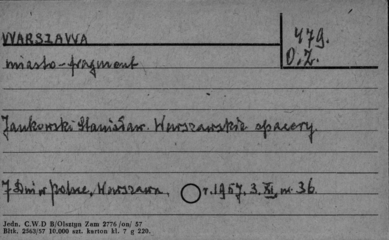 WARSZAWA
479.
O.Z.
miasto-fragment
Jankowski Stanisław. Warszawskie spacery.
7 Dni w Polsce, Warszawa, r. 1957, 3. XI, nr 36.
Jedn. C.W.D B/Olsztyn Zam 2776 /on/ 57
Bltk. 2563/57 10.000 szt. karton kl. 7 g 220.